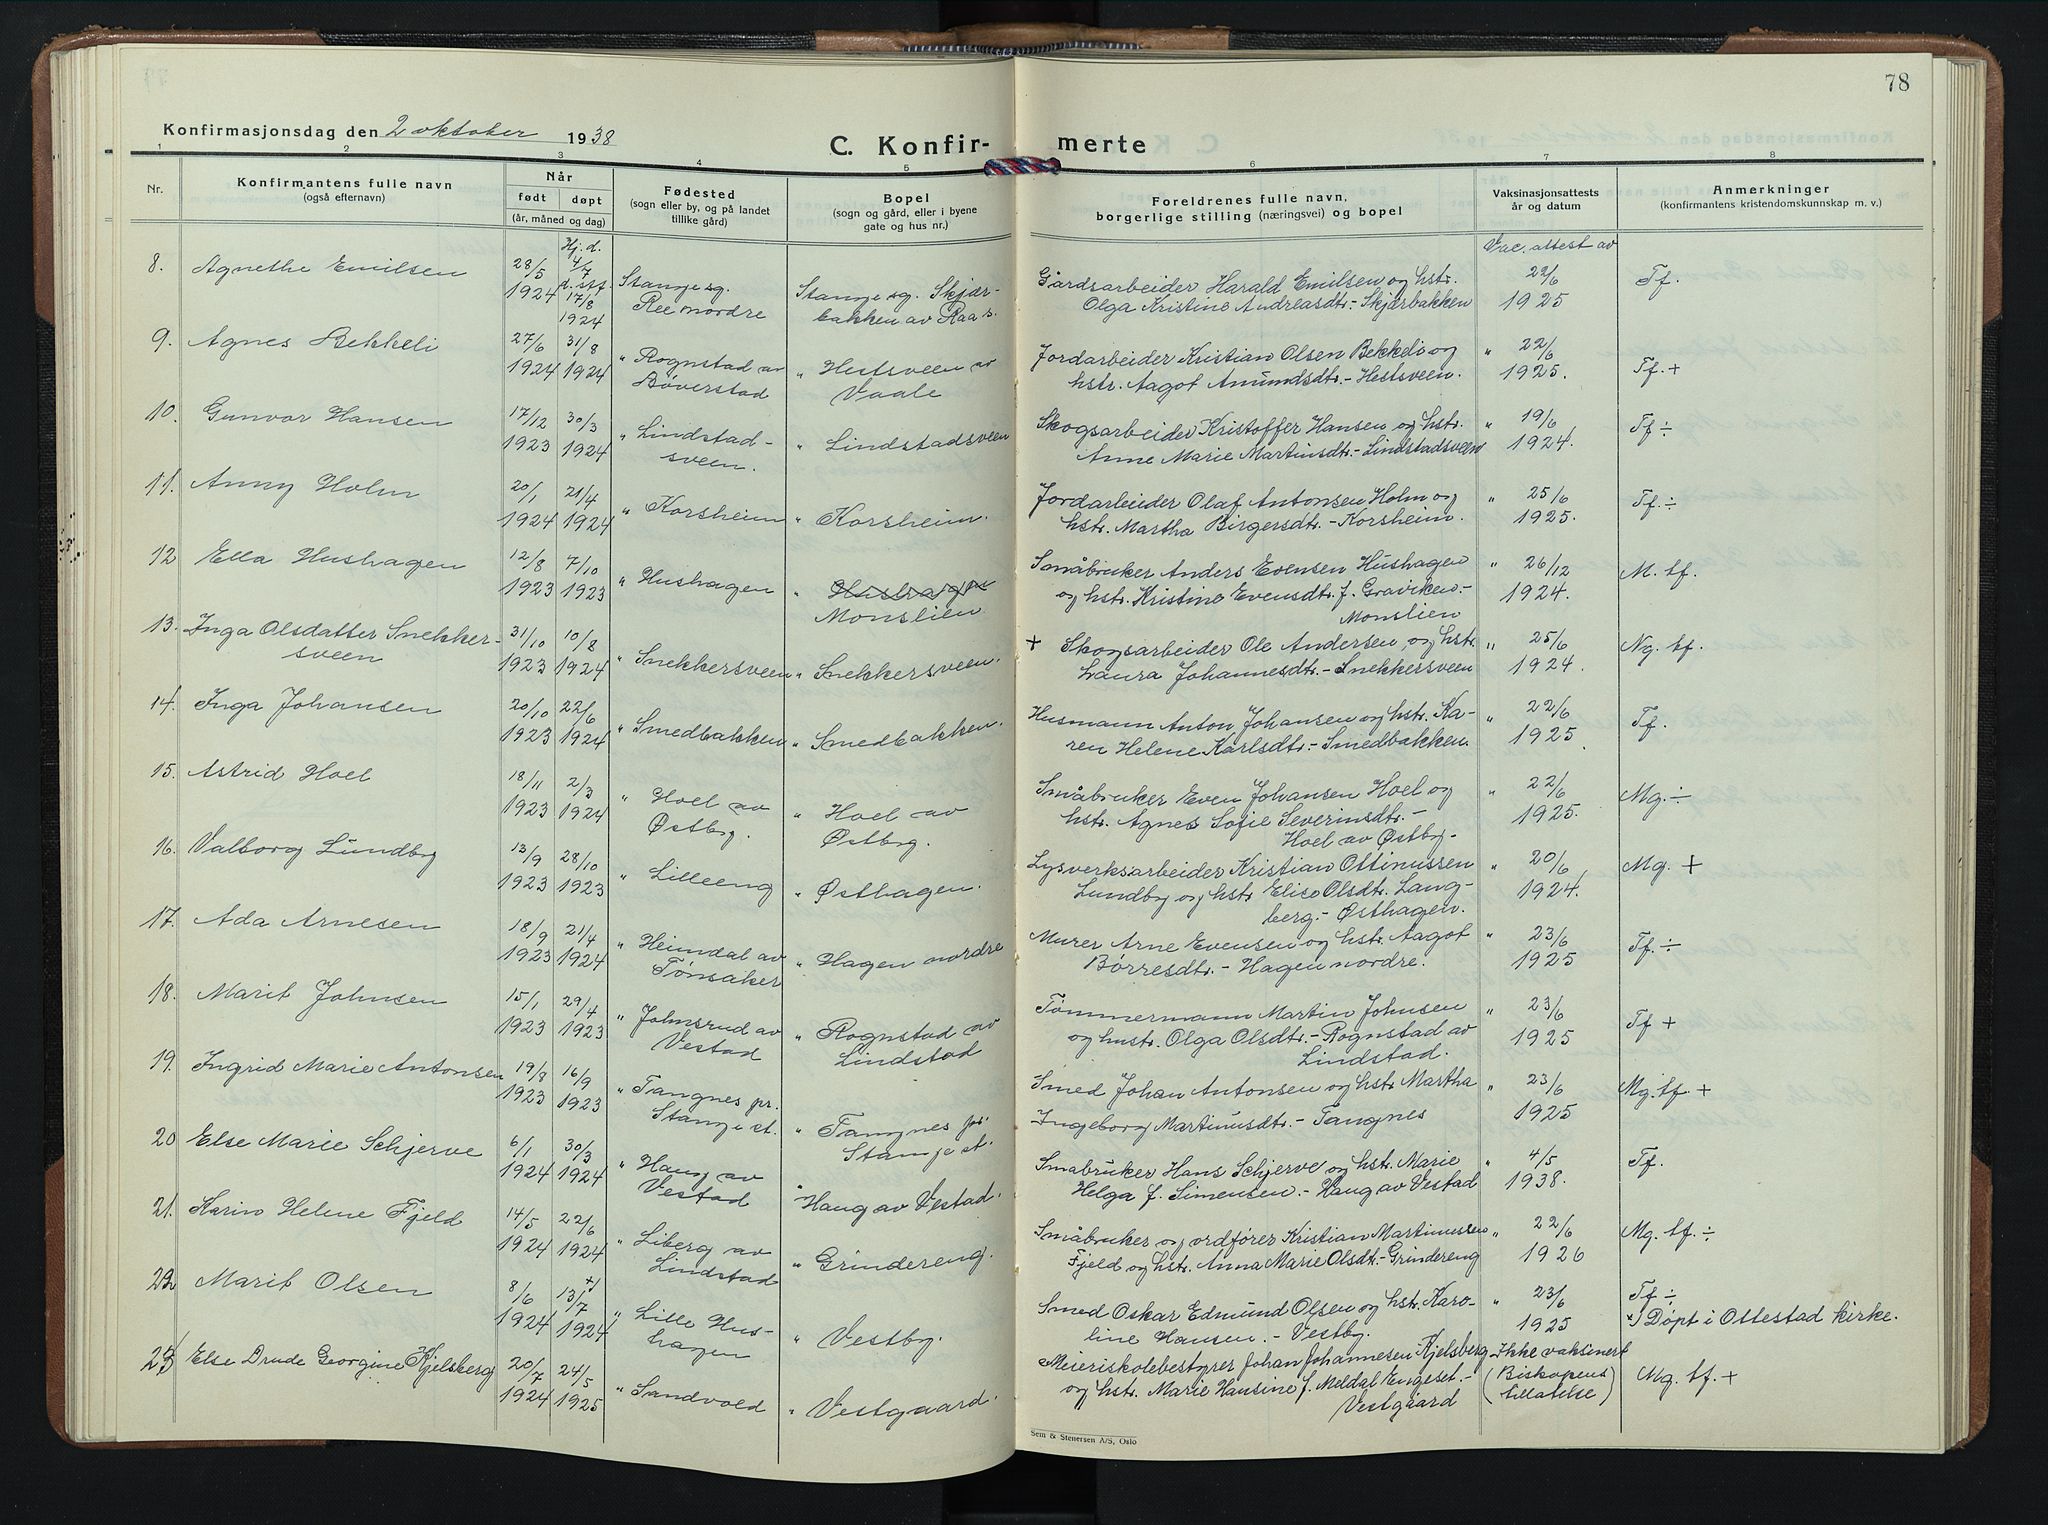 78
Konfirmasjonsdag den 2 oktober 1938
C. Konfir- merte
1 2 3 4 5 6 7 8
Nr.
Konfirmantens fulle navn
(også efternavn)
Når
født døpt
(år, måned og dag)
Fødested
(sogn eller by, og på landet
tillike gård)
Bopel
(sogn og gård, eller i byene
gate og hus nr.)
Foreldrenes fulle navn,
borgerlige stilling (næringsvei) og bopel
Vaksinasjonsattests
år og datum
Anmerkninger
(konfirmantens kristendomskunnskap m. v.)
Hj. d. Vac. attest av
8. Agnethe Emilsen 28/5 4/7 Stange sg. Stange sg. Skjær- Gårdsarbeider Harald Emilsen og hstr. 22/6 Tf.
1924 d. stf. 17/8 1924 Ree nordre bakken av Raa s. Olga Kristine Andreasdtr. - Skjærbakken 1925
9. Agnes Bekkeli 27/6 31/8 " Rognstad av " Hestsveen av Jordarbeider Kristian Olsen Bekkeli og " 22/6 Tf. +
1924 1924 Bøverstad Vaale hstr. Aagot Amundsdtr. - Hestsveen. 1925.
10. Gunvor Hansen 17/12 30/3 " Lindstad- " Lindstadsveen Skogsarbeider Kristoffer Hansen og hstr. " 19/6 Tf ÷
1923 1924 sveen. Anne Marie Martinsdtr. - Lindstadsveen 1924.
11. Anny Holm 20/1 21/4 " Korsheim " Korsheim. Jordarbeider Olaf Antonsen Holm og " 25/6 Tf. ÷
1924 1924 hstr. Martha Birgersdtr. - Korsheim. 1925.
12 Ella Hushagen 12/8 7/10 " Hushagen " Hushagen Småbruker Anders Evensen Hushagen " 26/12 M. tf.
1923 1923 Monslien og hstr. Kristine Evensdtr. f. Graviken. - 1924.
Monslien
13. Inga Olsdatter Snekker- 31/10 10/8 " Snekkersveen " Snekkersveen. + Skogsarbeider Ole Andersen, og hstr. " 25/6 Ng. tf.
sveen 1923 1924 Laura Johannesdtr. - Snekkersveen 1924.
14. Inga Johansen 20/10 22/6 " Smedbakken " Smedbakken. Husmann Anton Johansen og hstr. Ka- " 22/6 Tf.
1923 1924 ren Helene Karlsdtr. - Smedbakken. 1925.
15. Astrid Hoel 18/11 2/3 " Hoel av " Hoel av Småbruker Even Johansen Hoel og " 22/6 Mg. ÷
1923 1924 Østby. Østby. hstr. Agnes Sofie Severinsdtr. - 1925.
Hoel av Østby.
16. Valborg Lundby 13/9 28/10 " Lilleeng " Østhagen. Lysverksarbeider Kristian Ottinussen " 20/6 Mg. +
1923 1923 Lundby og hstr. Elise Olsdtr. Lang- 1924.
berg. - Østhagen.
17. Ada Arnesen 18/9 21/4 " Heimdal av " Hagen nordre Murer Arne Evensen og hstr. Aagot " 23/6 Tf. ÷
1923 1924 Tønsaker Børresdtr. - Hagen nordre. 1925
18. Marit Johnsen 15/1 29/4 " Johnsrud av " Rognstad av Tømmermann Martin Johnsen " 23/6 Tf +
1923 1923 Vestad Lindstad og hustr. Olga Olsdtr. - Rognstad av 1925
Lindstad.
19. Ingrid Marie Antonsen 19/8 16/9 " Tangnes pr. " Tangnes pr. Smed Johan Antonsen og hstr. Martha " 23/6 Mg. tf. +
1923 1923 Stange st. Stange st. Ingeborg Martinusdtr. - Tangnes 1925
20 Else Marie Schjerve 6/1 30/3 " Haug av " Haug av Vestad. Småbruker Hans Schjerve og hstr. Marie " 4/5 Tf.
1924 1924 Vestad Helga f. Simensen. - Haug av Vestad 1938.
21. Karin Helene Fjeld 14/5 22/6 " Liberg av " Grindereng. Småbruker og ordfører Kristian Martinussen " 22/6 Mg. tf. ÷
1924 1924 Lindstad Fjeld og hstr. Anna Marie Olsdtr. - Grindereng 1926
22 Marit Olsen 8/6 13/7 +) " Lille Hus- " Vestby. Smed Oskar Edmund Olsen og hstr. Karo- " 23/6 Tf ÷
1924 1924 hagen line Hansen. - Vestby. 1925 +) Døpt i Ottestad kirke.
23 Else Drude Georgine Kjelsberg 20/7 24/5 " Sandvold " Vestgaard. Meieriskolebestyrer Johan Johannesen Kjelsberg Ikke vaksinert Mg. tf. +
1924 1925 og hstr. Marie Hansine f. Meldal Engeset. - (Biskopens
Vestgaard tillatelse)
Sem & Stenersen A/S, Oslo